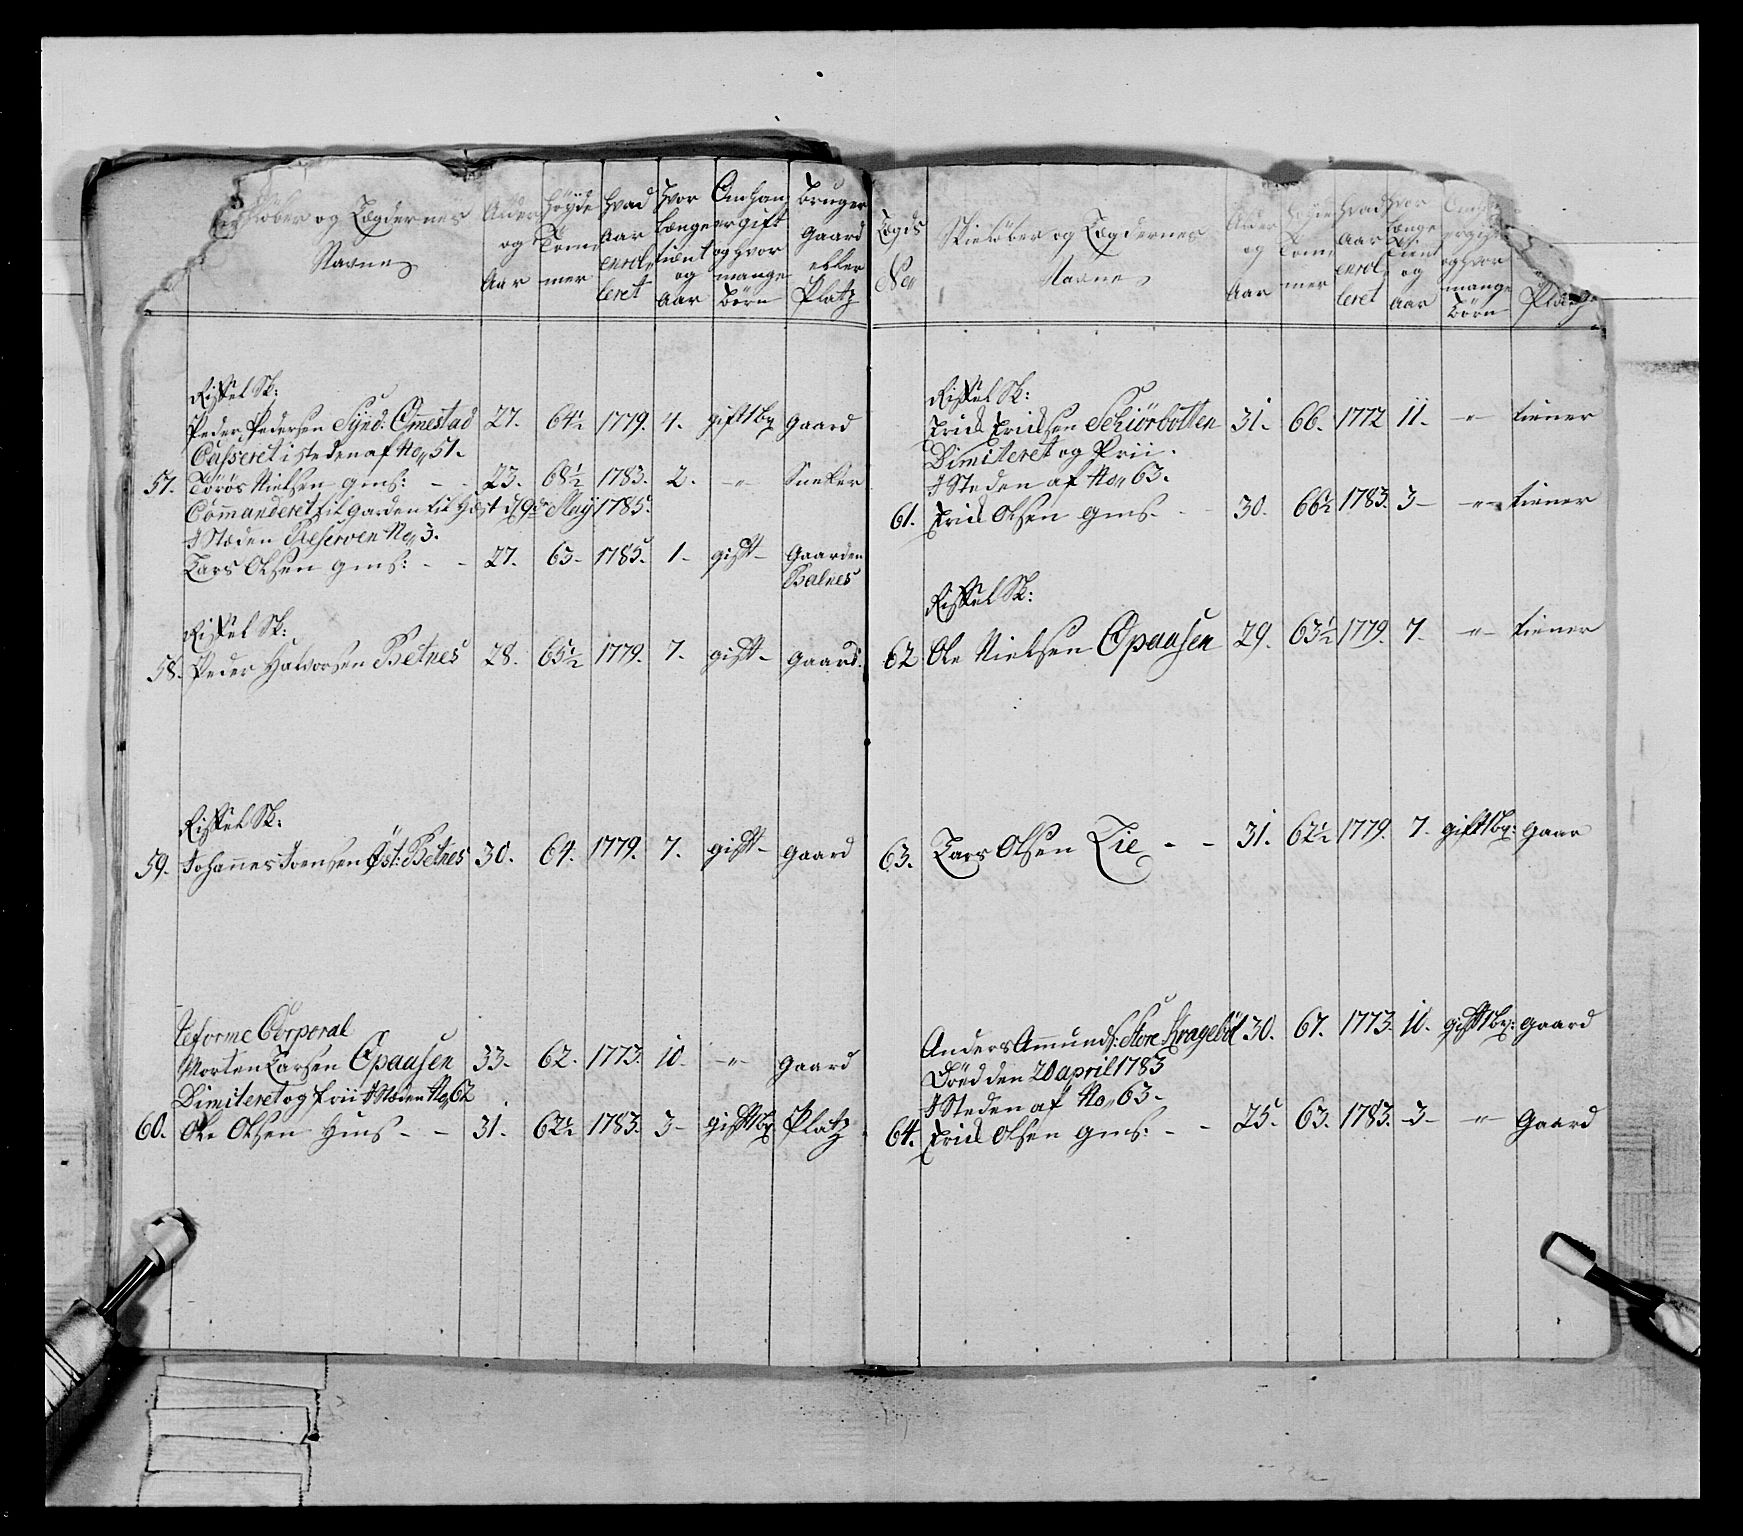 Skieløber og Lægdernes
Navne
Alder og Aar
Høyde Tommer
Hvad Aar enrolleret
Hvor længe tient og Aar
Om han er gift og hvor mange Børn
Bruger Gaard eller Platz
Riffel Sk:
Peder Pedersen Synd: Omestad 27. 64½ 1779. 4. gift 1 by Gaard
Casseret i steden af No 51.
57. Torøs Nielsen gms: - - 23. 68½ 1783. 2. -"- Sneker
Commanderet til Garden til Hæst d 9de May 1785.
I Stæden Reserven No 3.
Lars Olsen gms: - - 27. 63- 1785. 1- gift- Gaarden
Balnes
Riffel Sk:
58. Peder Halvorsen Betnes 28. 65½ 1779. 7. gift- Gaard.
Riffel Sk:
59. Johannes Joensen Øst: Betnes 30. 64. 1779. 7. gift- Gaard
Reforme Corporal
Morten Larsen Opausen 33. 62. 1773. 10. -"- Gaard
Dimiteret og frii I Stæden No 62
60. Ole Olsen Hus - - 31. 62½ 1783. 3- gift 1 by Platz
Lægds No
Skieløber og Lægdernes
Navne
Alder og Aar
Høyde Tommer
Hvad Aar enrolleret
Hvor længe tient og Aar
Om han er gift og hvor mange Børn
Platz
Riffel Sk:
Erick Ericksen Schiørbotten 31. 66. 1772 11. -"- tiener
Dimiteret og Frii.
I Steden af No 63.
61. Erick Olsen gms. - - 30. 66½ 1783. 3- -"- tiener
Riffel Sk:
62 Ole Nielsen Opausen 29. 63½ 1779. 7. -"- tiener
63. Lars Olsen Lie - - 31. 62½ 1779. 7. gift 1 by: Gaar
Anders Amunds: Store Kragebøl 30. 67. 1773. 10. gift 1 by: Gaard
Død den 20 april 1783
I Steden af No 63.
64. Erick Olsen gms: - - 25. 63. 1783. 3- -"- Gaard